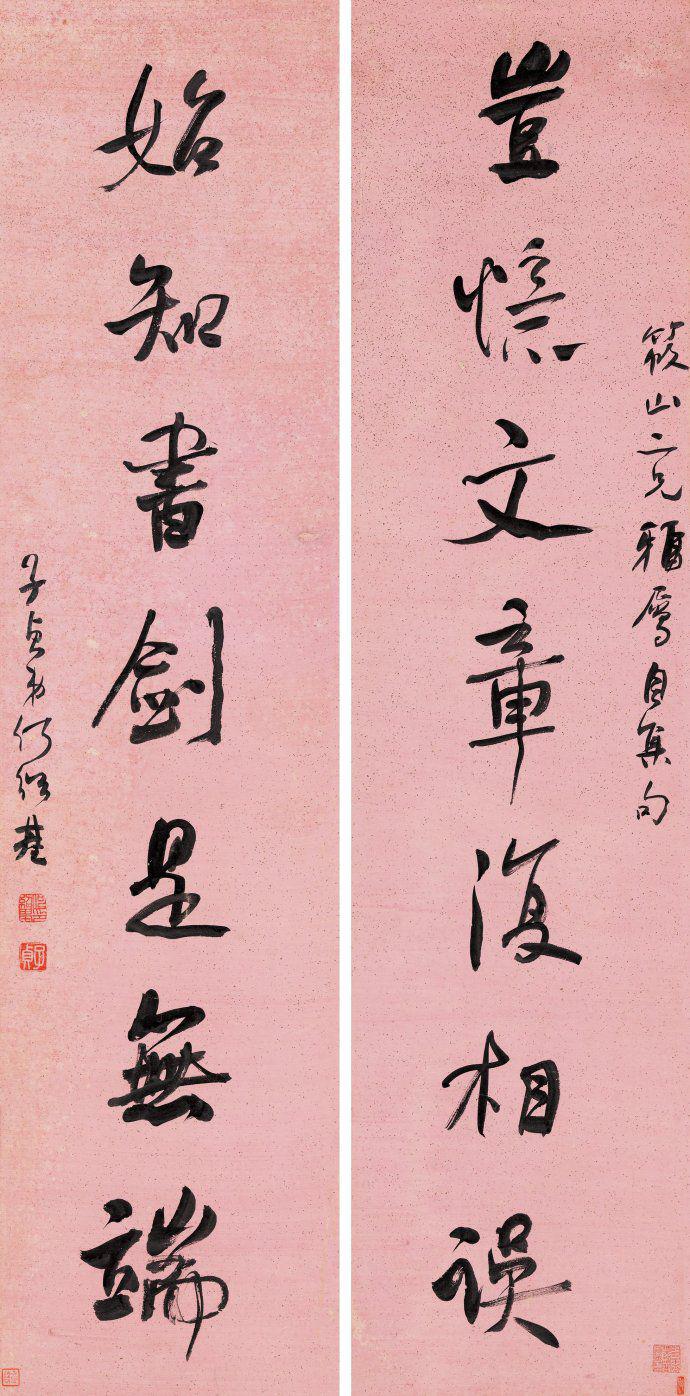 筱山二兄雅屬自集句
豈憶文章復相誤
始知書劍是無端
子貞弟何紹基
子貞